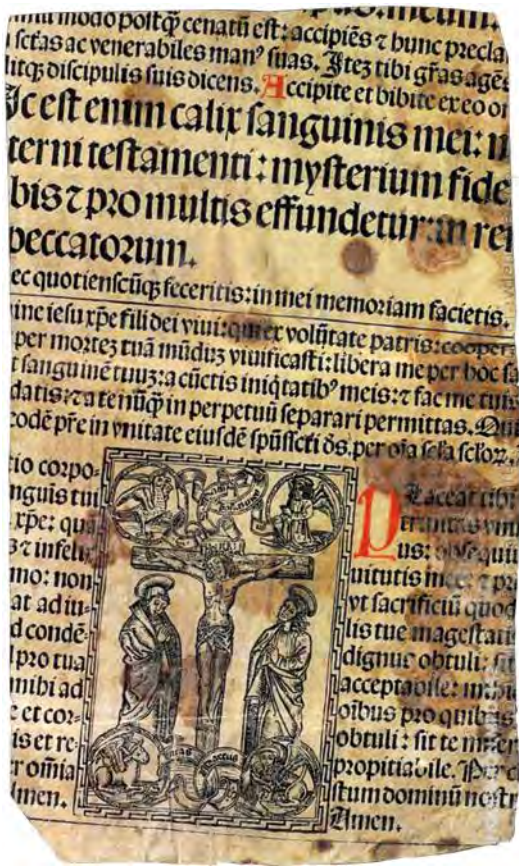 nili modo postqȝ cenatū est: accipiēs ⁊ hunc precla
sctās ac venerabiles manꝰ suas. Itez tibi gr̄as agēs
ditqȝ discipulis suis dicens. Accipite et bibite ex eo oī
Ic est enim calix sanguinis mei: n
terni testamenti: mysterium fide
bis ⁊ pro multis effundetur: in rem
peccatorum.
ec quotienscūqȝ feceritis: in mei memoriam facietis.
ine iesu xp̄e fili dei viui: qui ex volūtate patris: cooper
per mortez tuā mūduz viuificasti: libera me per hoc sa
t sanguinē tuuz: a cūctis iniq̄tatibꝰ meis: ⁊ fac me tuis
datis: ⁊ a te nūqȝ in perpetuū separari permittas. Qui
eodē pr̄e in vnitate eiusdē sp̄ūsscti ds̄. per oīa scl̄a scl̄oꝝ.
tio corpo-
nguis tui
xp̄e: qua
ȝ ⁊ infelix
mo: non
at ad iu-
d condē-
pro tua
mihi ad
et cor-
is et re-
r om̄ia
Amen.
Placeat tibi
trinitas
us: obsequiū
uitutis mee: ⁊ pr
vt sacrificiū quod
lis tue magestatis
dignus obtuli: sit
acceptabile: mihi
oībus pro quibus
obtuli: sit te miser
propitiabile. Per
stum dominū nostr
Amen.